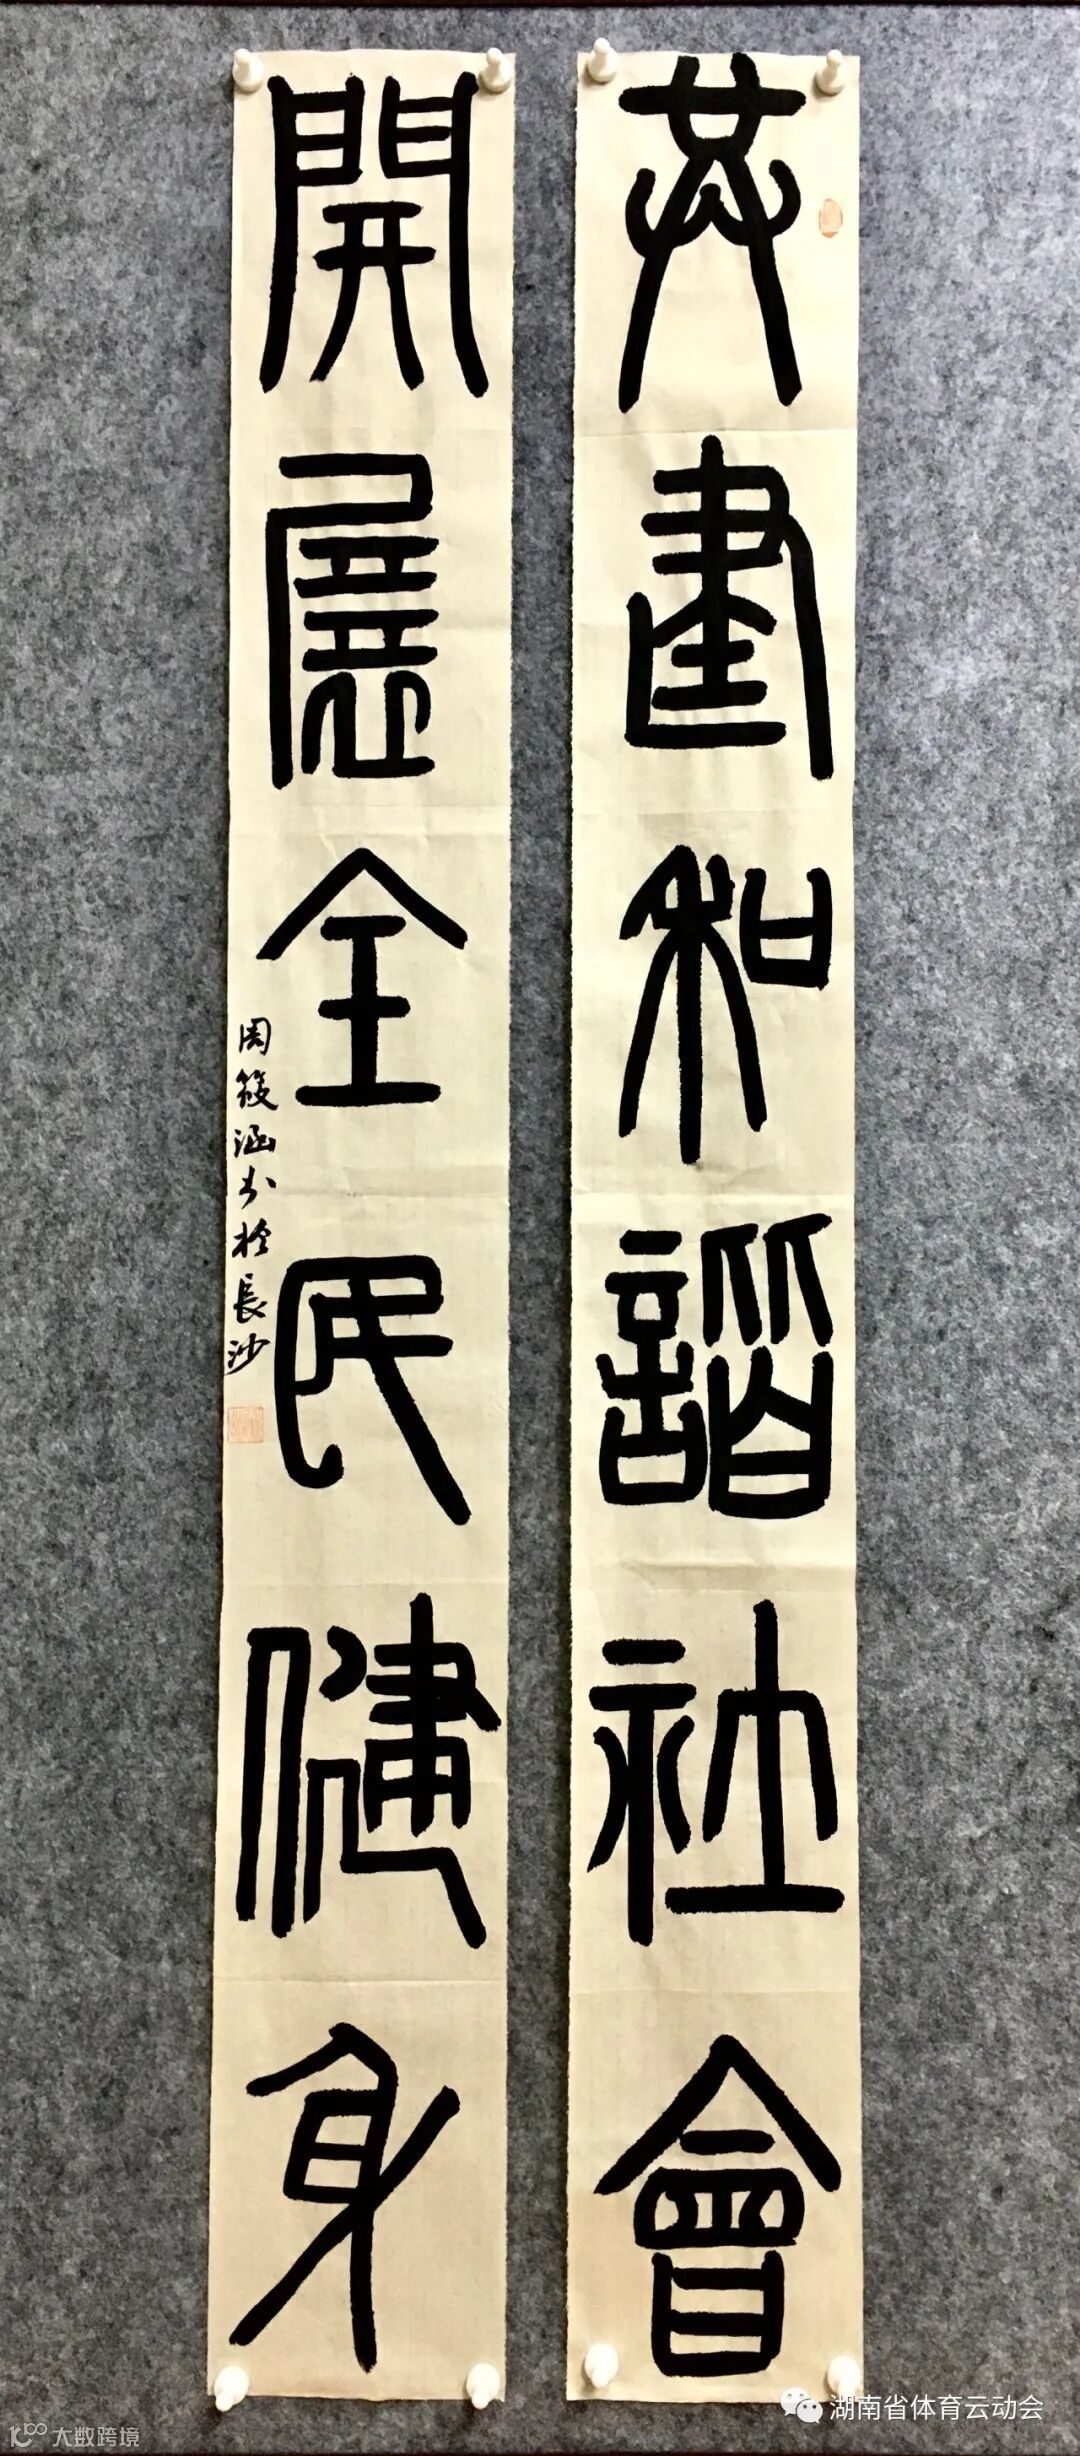 共建和諧社會
開展全民健身
周筱涵书於長沙
湖南省体育云动会
大数跨境